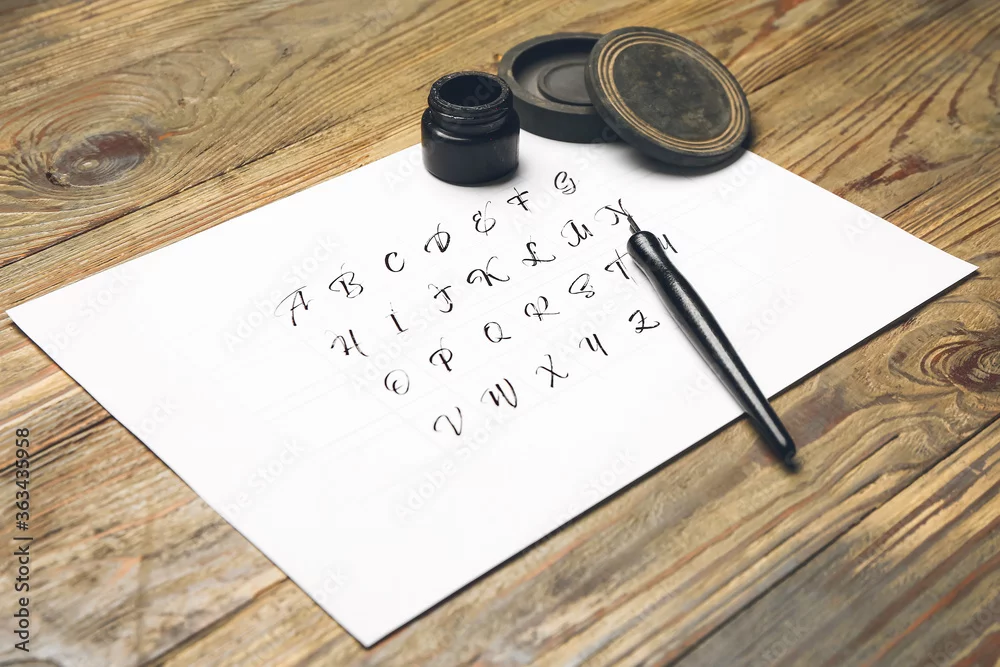 A B C D E F G
H I J K L M N
O P Q R S T U
V W X Y Z
Adobe Stock | #363435958